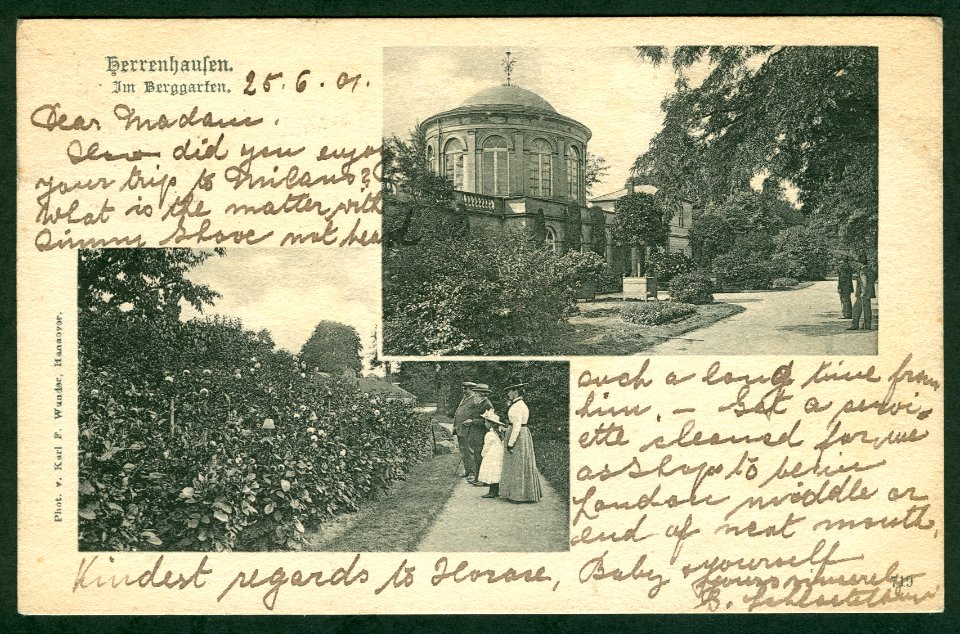 Herrenhausen.
Im Berggarten. 25.6.01.
Dear Madam.
How did you enjoy
your trip to Milano?
What is the matter with
Jimmy I have not hea
such a long time from
him. — Get a servi-
ette cleaned for me
as I hope to be in
London middle or
end of next month,
Kindest regards to Horace, Baby & yourself
Yours sincerely
B.
719
Phot. v. Karl F. Wunder, Hannover.